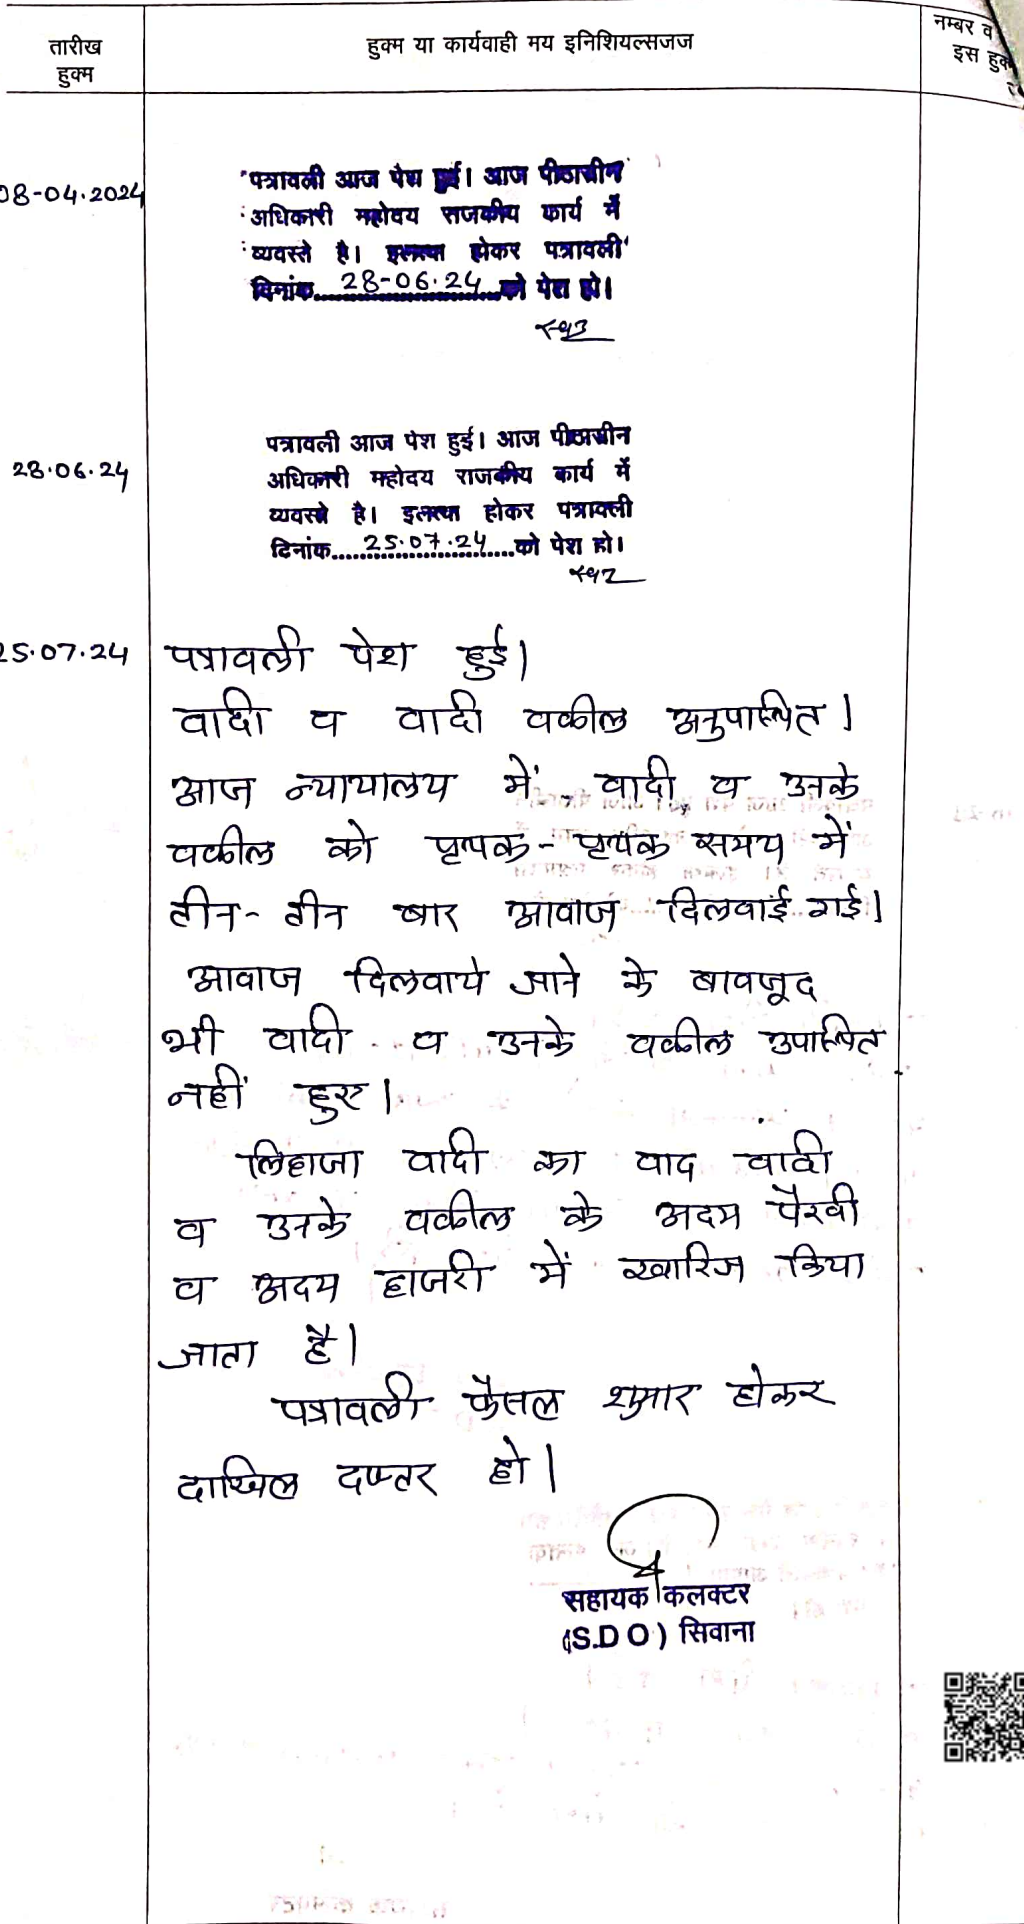 तारीख
हुक्म
हुक्म या कार्यवाही मय इनिशियल्सजज
नम्बर व
इस हुक
08-04.2024
पत्रावली आज पेश हुई। आज पीठासीन
अधिकारी महोदय राजकीय कार्य में
व्यवस्ते है। इलत्वा होकर पत्रावली
दिनांक..28-06.24..को पेश हो।
28.06.24
पत्रावली आज पेश हुई। आज पीठासीन
अधिकारी महोदय राजकीय कार्य में
व्यवस्ते है। इलत्वा होकर पत्रावली
दिनांक.....25.07.24.....को पेश हो।
25.07.24
पत्रावली पेश हुई।
वादी व वादी वकील अनुपस्थित।
आज न्यायालय में वादी व उनके
वकील को पृथक-पृथक समय में
तीन-तीन बार आवाज दिलवाई गई।
आवाज दिलवाये जाने के बावजूद
भी वादी व उनके वकील उपस्थित
नहीं हुए।
लिहाजा वादी का वाद वादी
व उनके वकील के अदम पैरवी
व अदम हाजरी में खारिज किया
जाता है।
पत्रावली फैसल शुमार होकर
दाखिल दफ्तर हो।
सहायक कलक्टर
(S.D O) सिवाना